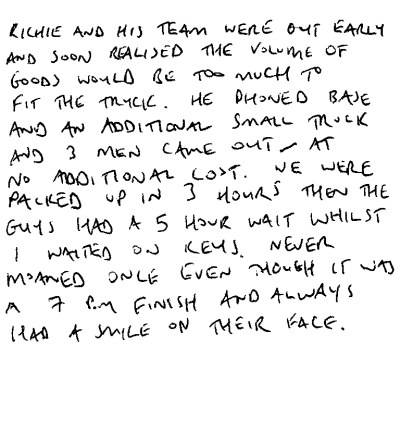 RICHIE AND HIS TEAM WERE OUT EARLY
AND SOON REALISED THE VOLUME OF
GOODS WOULD BE TOO MUCH TO
FIT THE TRUCK. HE PHONED BASE
AND AN ADDITIONAL SMALL TRUCK
AND 3 MEN CAME OUT - AT
NO ADDITIONAL COST. WE WERE
PACKED UP IN 3 HOURS THEN THE
GUYS HAD A 5 HOUR WAIT WHILST
I WAITED ON KEYS. NEVER
MOANED ONCE EVEN THOUGH IT WAS
A 7 P.M FINISH AND ALWAYS
HAD A SMILE ON THEIR FACE.